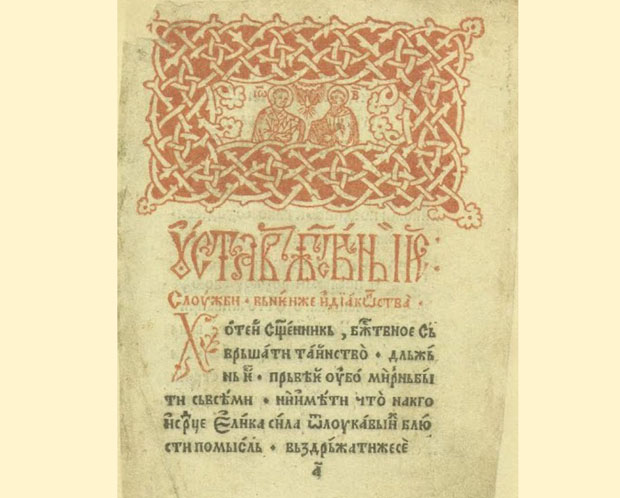 ІѠ В
Оуставъ бж҃твьныѥ:
Слоужби • вьниⷨже идїакѡⷭ҇тва •
Хотеи сщ҃енникь, бж҃твное съ
врьшати таинство • дльжь
нь ѥⷭ҇ • прьвѣѥ оубо мирньбы
ти съвсѣми • и имѣти что накго
исрⷣце Елика сила ѿлоукавыиⷯ блю
сти помысль • въздрьжатижесе
а҃